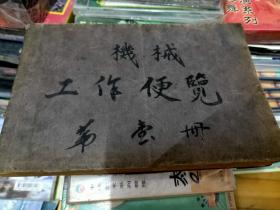 機械
工作便覽
第壹冊